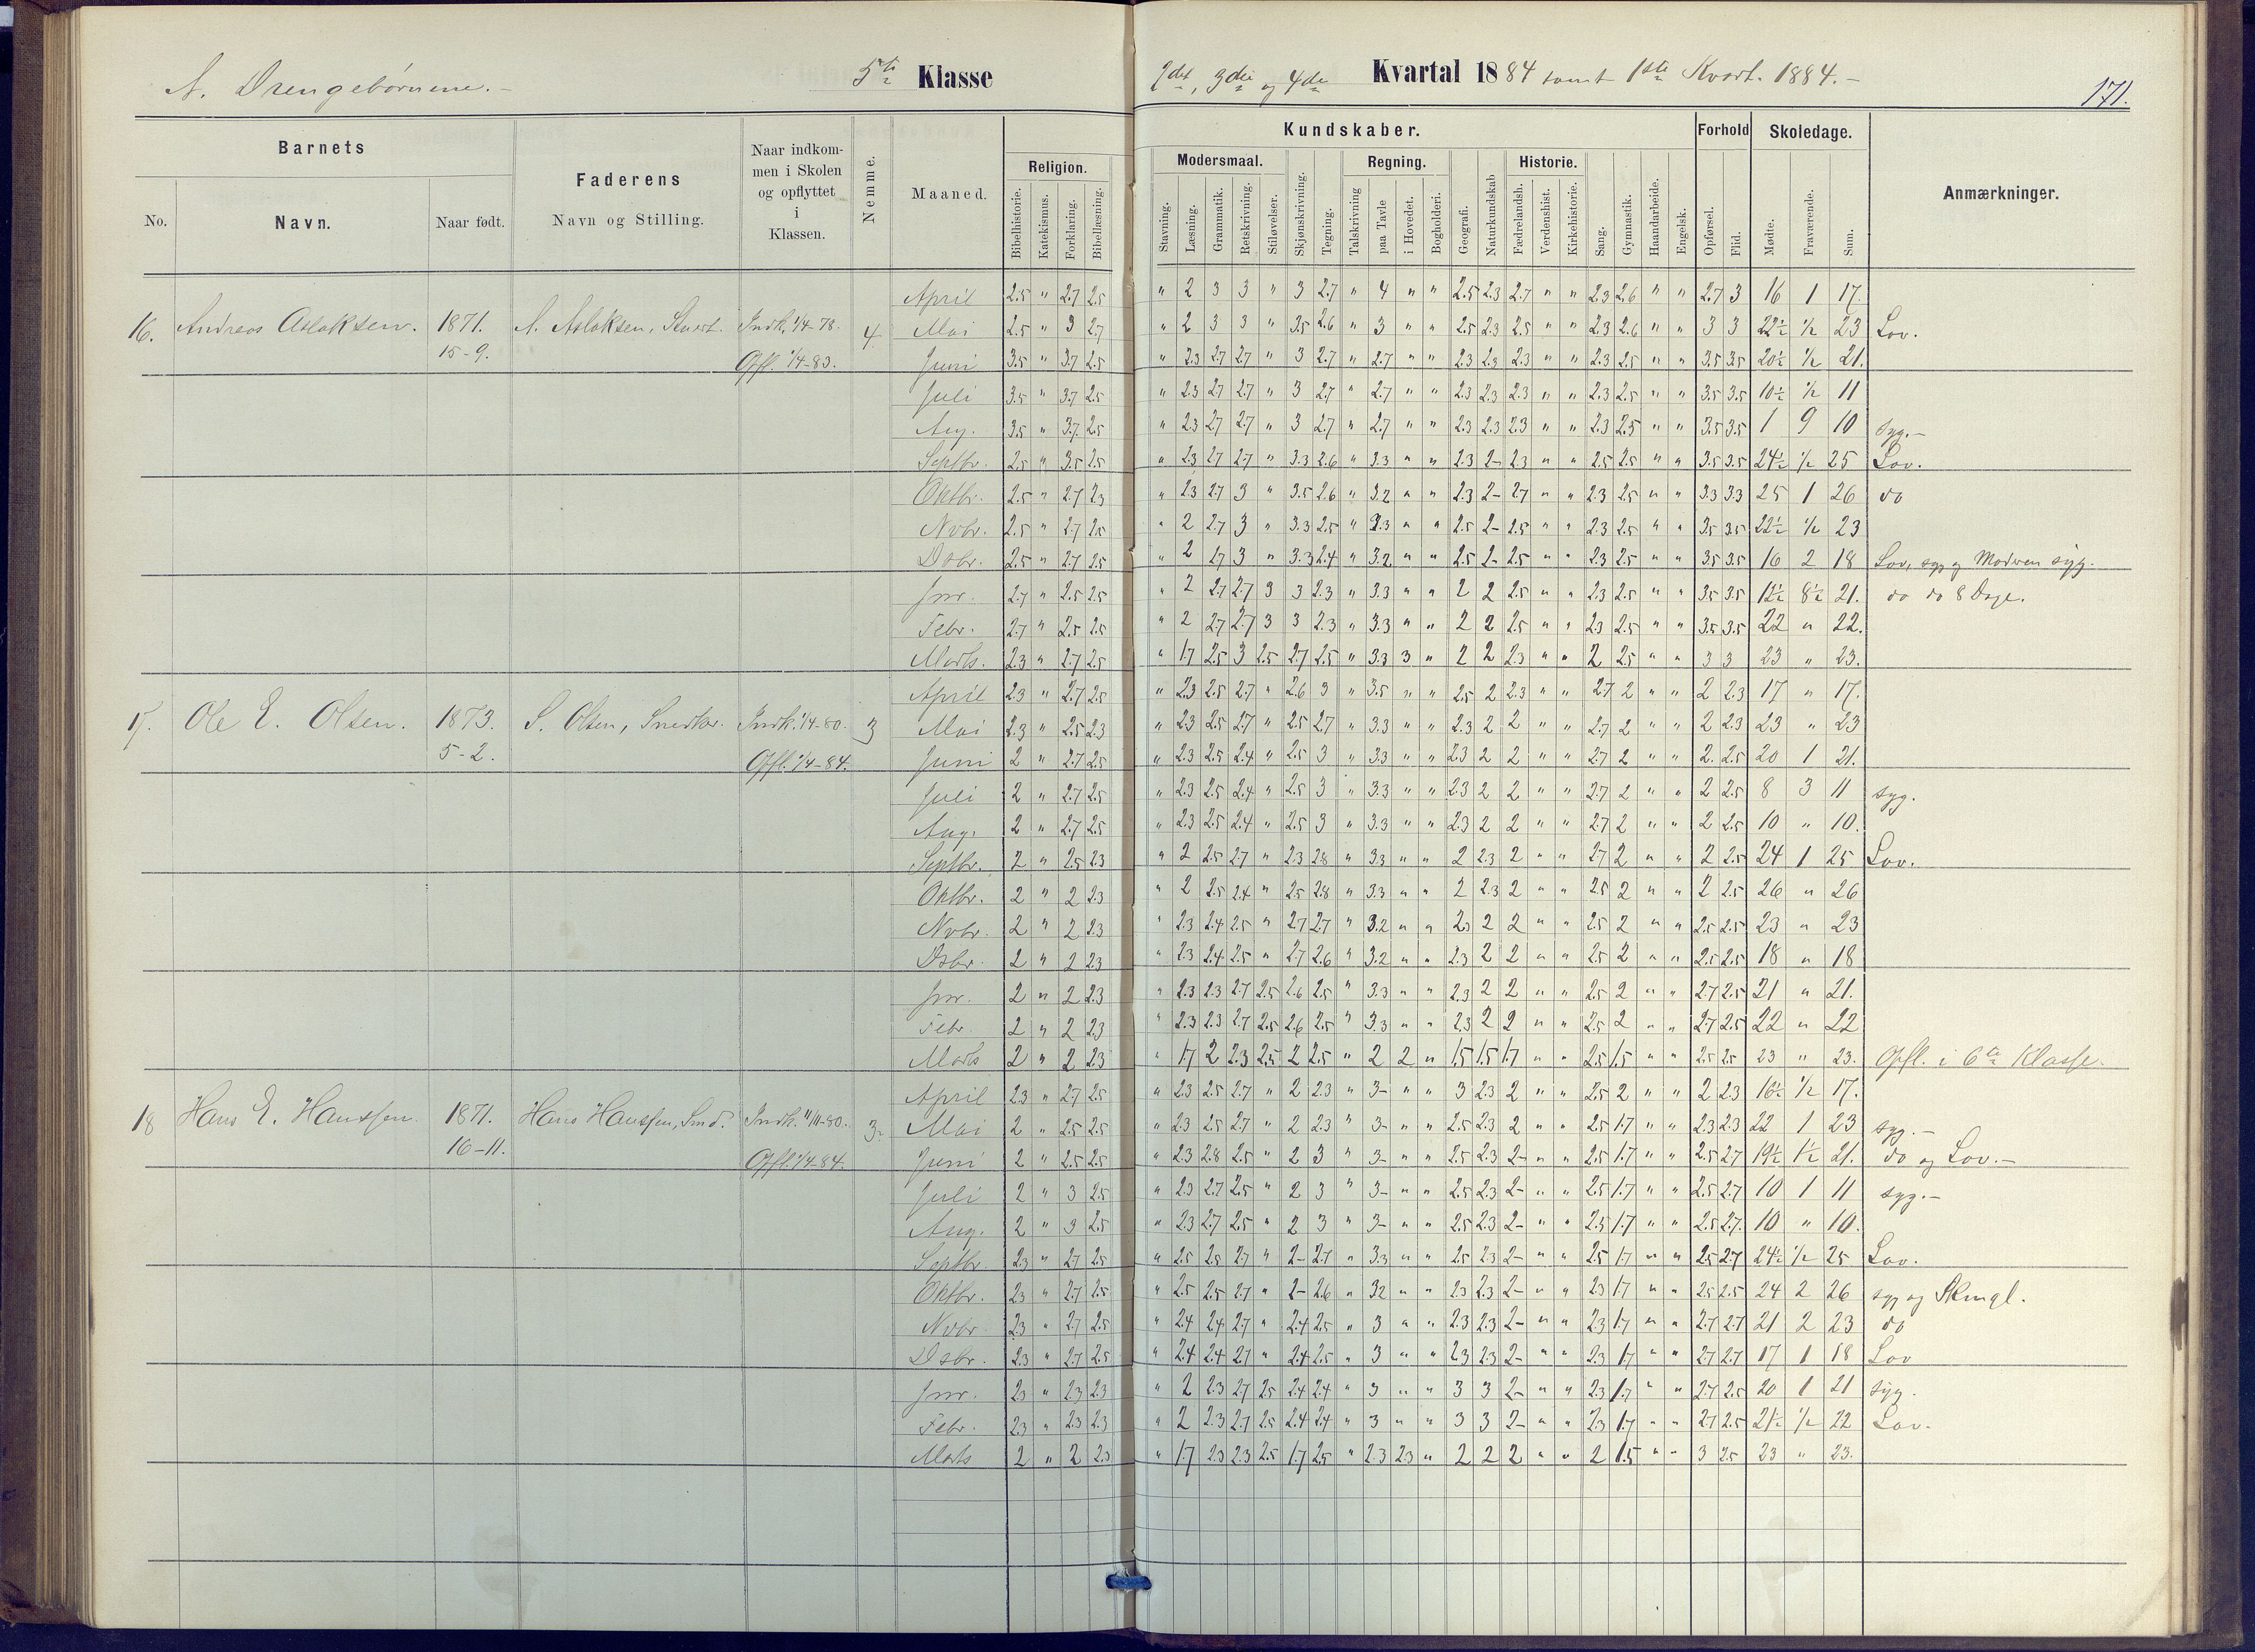 A. Drengebørnene. - 5te Klasse 2det, 3die og 4de Kvartal 1884 samt 1ste Kvart. 1884. - 171.
Barnets
No. Navn. Naar født.
Faderens
Navn og Stilling.
Naar indkom-
men i Skolen
og opflyttet
i
Klassen.
Nemme.
Maaned.
Religion.
Bibelhistorie. Katekismus. Forklaring. Bibellæsning.
Kundskaber.
Modersmaal.
Stavning. Læsning. Grammatik. Retskrivning. Stiløvelser.
Skjønskrivning. Tegning.
Regning.
Talskrivning paa Tavle i Hovedet. Bogholderi.
Geografi. Naturkundskab
Historie.
Fædrelandsh. Verdenshist. Kirkehistorie.
Sang. Gymnastik. Haandarbeide. Engelsk.
Forhold
Opførsel. Flid.
Skoledage.
Mødte. Fraværende. Sum.
Anmærkninger.
April 2.5 " 2.7 2.5 " 2 3 3 " 3 2.7 " 4 " " 2.5 2.3 2.7 " " 2.3 2.6 " " 2.7 3 16 1 17.
16. Andreas Aslaksen. 1871. A. Aslaksen, Indk. 1/4-78. 4 Mai 2.5 " 3 2.7 " 2 3 3 " 3.5 2.6 " 3 " " 2.5 2.3 2.5 " " 2.3 2.6 " " 3 3 22½ ½ 23 Lov.
15-9. Opfl. 1/4-83. Juni 3.5 " 3.7 2.5 " 2.3 2.7 2.7 " 3 2.7 " 2.7 " " 2.3 2.3 2.3 " " 2.3 2.5 " " 3.5 3.5 20½ ½ 21.
Juli 3.5 " 3.7 2.5 " 2.3 2.7 2.7 " 3 2.7 " 2.7 " " 2.3 2.3 2.3 " " 2.3 2.5 " " 3.5 3.5 10½ ½ 11
Aug. 3.5 " 3.7 2.5 " 2.3 2.7 2.7 " 3 2.7 " 2.7 " " 2.3 2.3 2.3 " " 2.3 2.5 " " 3.5 3.5 1 9 10 syg.-
Septbr. 2.5 " 3.5 2.5 " 2.3 2.7 2.7 " 3.3 2.6 " 3.3 " " 2.3 2- 2.3 " " 2.5 2.5 " " 3.5 3.5 24½ ½ 25 Lov.
Oktbr. 2.5 " 2.7 2.3 " 2.3 2.7 3 " 3.5 2.6 " 3.2 " " 2.3 2- 2.7 " " 2.3 2.5 " " 3.3 3.3 25 1 26 do
Nvbr. 2.5 " 2.7 2.5 " 2 2.7 3 " 3.3 2.5 " 3.3 " " 2.5 2- 2.5 " " 2.3 2.5 " " 3.5 3.5 22½ ½ 23
Dsbr. 2.5 " 2.7 2.5 " 2 2.7 3 " 3.3 2.4 " 3.2 " " 2.5 2- 2.5 " " 2.3 2.5 " " 3.5 3.5 16 2 18 Lov, syg og Moderen syg.
Jnr. 2.7 " 2.5 2.5 " 2 2.7 2.7 3 3 2.3 " 3.3 " " 2 2 2.5 " " 2.3 2.5 " " 3.5 3.5 12½ 8½ 21. do do 8 Dage.
Febr. 2.7 " 2.5 2.5 " 2 2.7 2.7 3 3 2.3 " 3.3 " " 2 2 2.5 " " 2.3 2.5 " " 3.5 3.5 22 " 22.
Marts. 2.3 " 2.7 2.5 " 1.7 2.5 3 2.5 2.7 2.5 " 3.3 3 " 2 2 2.3 " " 2 2.5 " " 3 3 23 " 23.
April 2.3 " 2.7 2.5 " 2.3 2.5 2.7 " 2.6 3 " 3.5 " " 2.5 2 2.3 " " 2.7 2 " " 2 2.3 17 " 17.
17. Ole E. Olsen. 1873. S. Olsen, Snedker. Indk. 1/4-80. 3 Mai 2.3 " 2.5 2.3 " 2.3 2.5 2.7 " 2.5 2.7 " 3.3 " " 2.3 2 2 " " 2.7 2 " " 2 2.3 23 " 23
5-2. Opfl. 1/4-84. Juni 2 " 2.7 2.5 " 2.3 2.5 2.4 " 2.5 3 " 3.3 " " 2.3 2 2 " " 2.7 2 " " 2. 2.5 20 1 21.
Juli 2 " 2.7 2.5 " 2.3 2.5 2.4 " 2.5 3 " 3.3 " " 2.3 2 2 " " 2.7 2 " " 2 2.5 8 3 11 syg.
Aug. 2 " 2.7 2.5 " 2.3 2.5 2.4 " 2.5 3 " 3.3 " " 2.3 2 2 " " 2.7 2 " " 2 2.5 10 " 10.
Septbr. 2 " 2.5 2.3 " 2 2.5 2.7 " 2.3 2.8 " 3.3 " " 2 2.3 2 " " 2.7 2 " " 2 2.5 24 1 25 Lov.
Oktbr. 2 " 2 2.3 " 2 2.5 2.4 " 2.5 2.8 " 3.3 " " 2 2.3 2 " " 2.5 2 " " 2 2.5 26 " 26
Nvbr. 2 " 2 2.3 " 2.3 2.4 2.5 " 2.7 2.7 " 3.2 " " 2.3 2 2 " " 2.5 2 " " 2.5 2.5 23 " 23
Dsbr. 2 " 2 2.3 " 2.3 2.4 2.5 " 2.7 2.6 " 3.2 " " 2.3 2 2 " " 2.5 2 " " 2.5 2.5 18 " 18
Jnr. 2 " 2 2.3 " 2.3 2.3 2.7 2.5 2.6 2.5 " 3.3 " " 2.3 2 2 " " 2.5 2 " " 2.7 2.5 21 " 21.
Febr. 2 " 2 2.3 " 2.3 2.3 2.7 2.5 2.6 2.5 " 3.3 " " 2.3 2 2 " " 2.5 2 " " 2.7 2.5 22 " 22
Marts 2 " 2 2.3 " 1.7 2 2.3 2.5 2 2.5 " 2 2 " 1.5 1.5 1.7 " " 2.5 1.5 " " 2.5 2.5 23 " 23. Opfl. i 6te Klasse.
April 2.3 " 2.7 2.5 " 2.3 2.5 2.7 " 2 2.3 " 3- " " 3 2.3 2 " " 2.5 2 " " 2 2.3 16½ ½ 17.
18 Hans E. Hanssen. 1871. Hans Hanssen, Smd. Indk. 11/11-80. 3- Mai 2 " 2.5 2.5 " 2.3 2.5 2.7 " 2 2.3 " 3- " " 2.5 2.3 2 " " 2.5 1.7 " " 2.3 2.3 22 1 23 syg.-
16-11. Opfl. 1/4-84. Juni 2 " 2.5 2.5 " 2.3 2.8 2.5 " 2 3 " 3- " " 2.5 2.3 2- " " 2.5 1.7 " " 2.5 2.7 19½ 1½ 21. do og Lov.-
Juli 2 " 3 2.5 " 2.3 2.7 2.5 " 2 3 " 3- " " 2.5 2.3 2- " " 2.5 1.7 " " 2.5 2.7 10 1 11 syg.-
Aug. 2 " 3 2.5 " 2.3 2.7 2.5 " 2 3 " 3- " " 2.5 2.3 2- " " 2.5 1.7 " " 2.5 2.7. 10 " 10.
Septbr. 2.3 " 2.7 2.5 " 2.5 2.5 2.7 " 2- 2.7 " 3.3 " " 2.5 2.3 2- " " 2.5 1.7 " " 2.5 2.7 24½ ½ 25 Lov.
Oktbr. 2.3 " 2.7 2.5 " 2.5 2.5 2.7 " 2- 2.6 " 3.2 " " 2.3 2.3 2- " " 2.3 1.7 " " 2.5 2.5 24 2 26 syg og
Nvbr. 2.3 " 2.7 2.5 " 2.4 2.4 2.7 " 2.4 2.5 " 3 " " 2.3 2.3 2- " " 2.3 1.7 " " 2.7 2.7 21 2 23 do
Dsbr. 2.3 " 2.7 2.5 " 2.4 2.4 2.7 " 2.4 2.5 " 3 " " 2.3 2.3 2- " " 2.3 1.7 " " 2.7 2.7 17 1 18 Lov
Jnr. 2.3 " 2.3 2.3 " 2 2.3 2.7 2.5 2.4 2.4 " 3 " " 3 3 2- " " 2.3 1.7 " " 2.7 2.5 20 1 21 syg.
Febr. 2.3 " 2.3 2.3 " 2 2.3 2.7 2.5 2.4 2.4 " 3 " " 3 3 2- " " 2.3 1.7 " " 2.7 2.5 21½ ½ 22 Lov.
Marts 2 " 2 2.3 " 1.7 2.3 2.3 2.5 1.7 2.5 " 2.3 2.3 " 2 2 2 " " 2 1.5 " " 3 2.5 23 " 23.